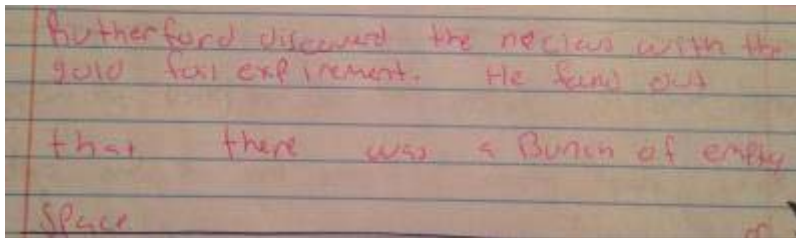 Rutherford discoverd the neclous with the
gold foil expirement. He fund out
that there was a Bunch of empty
Space